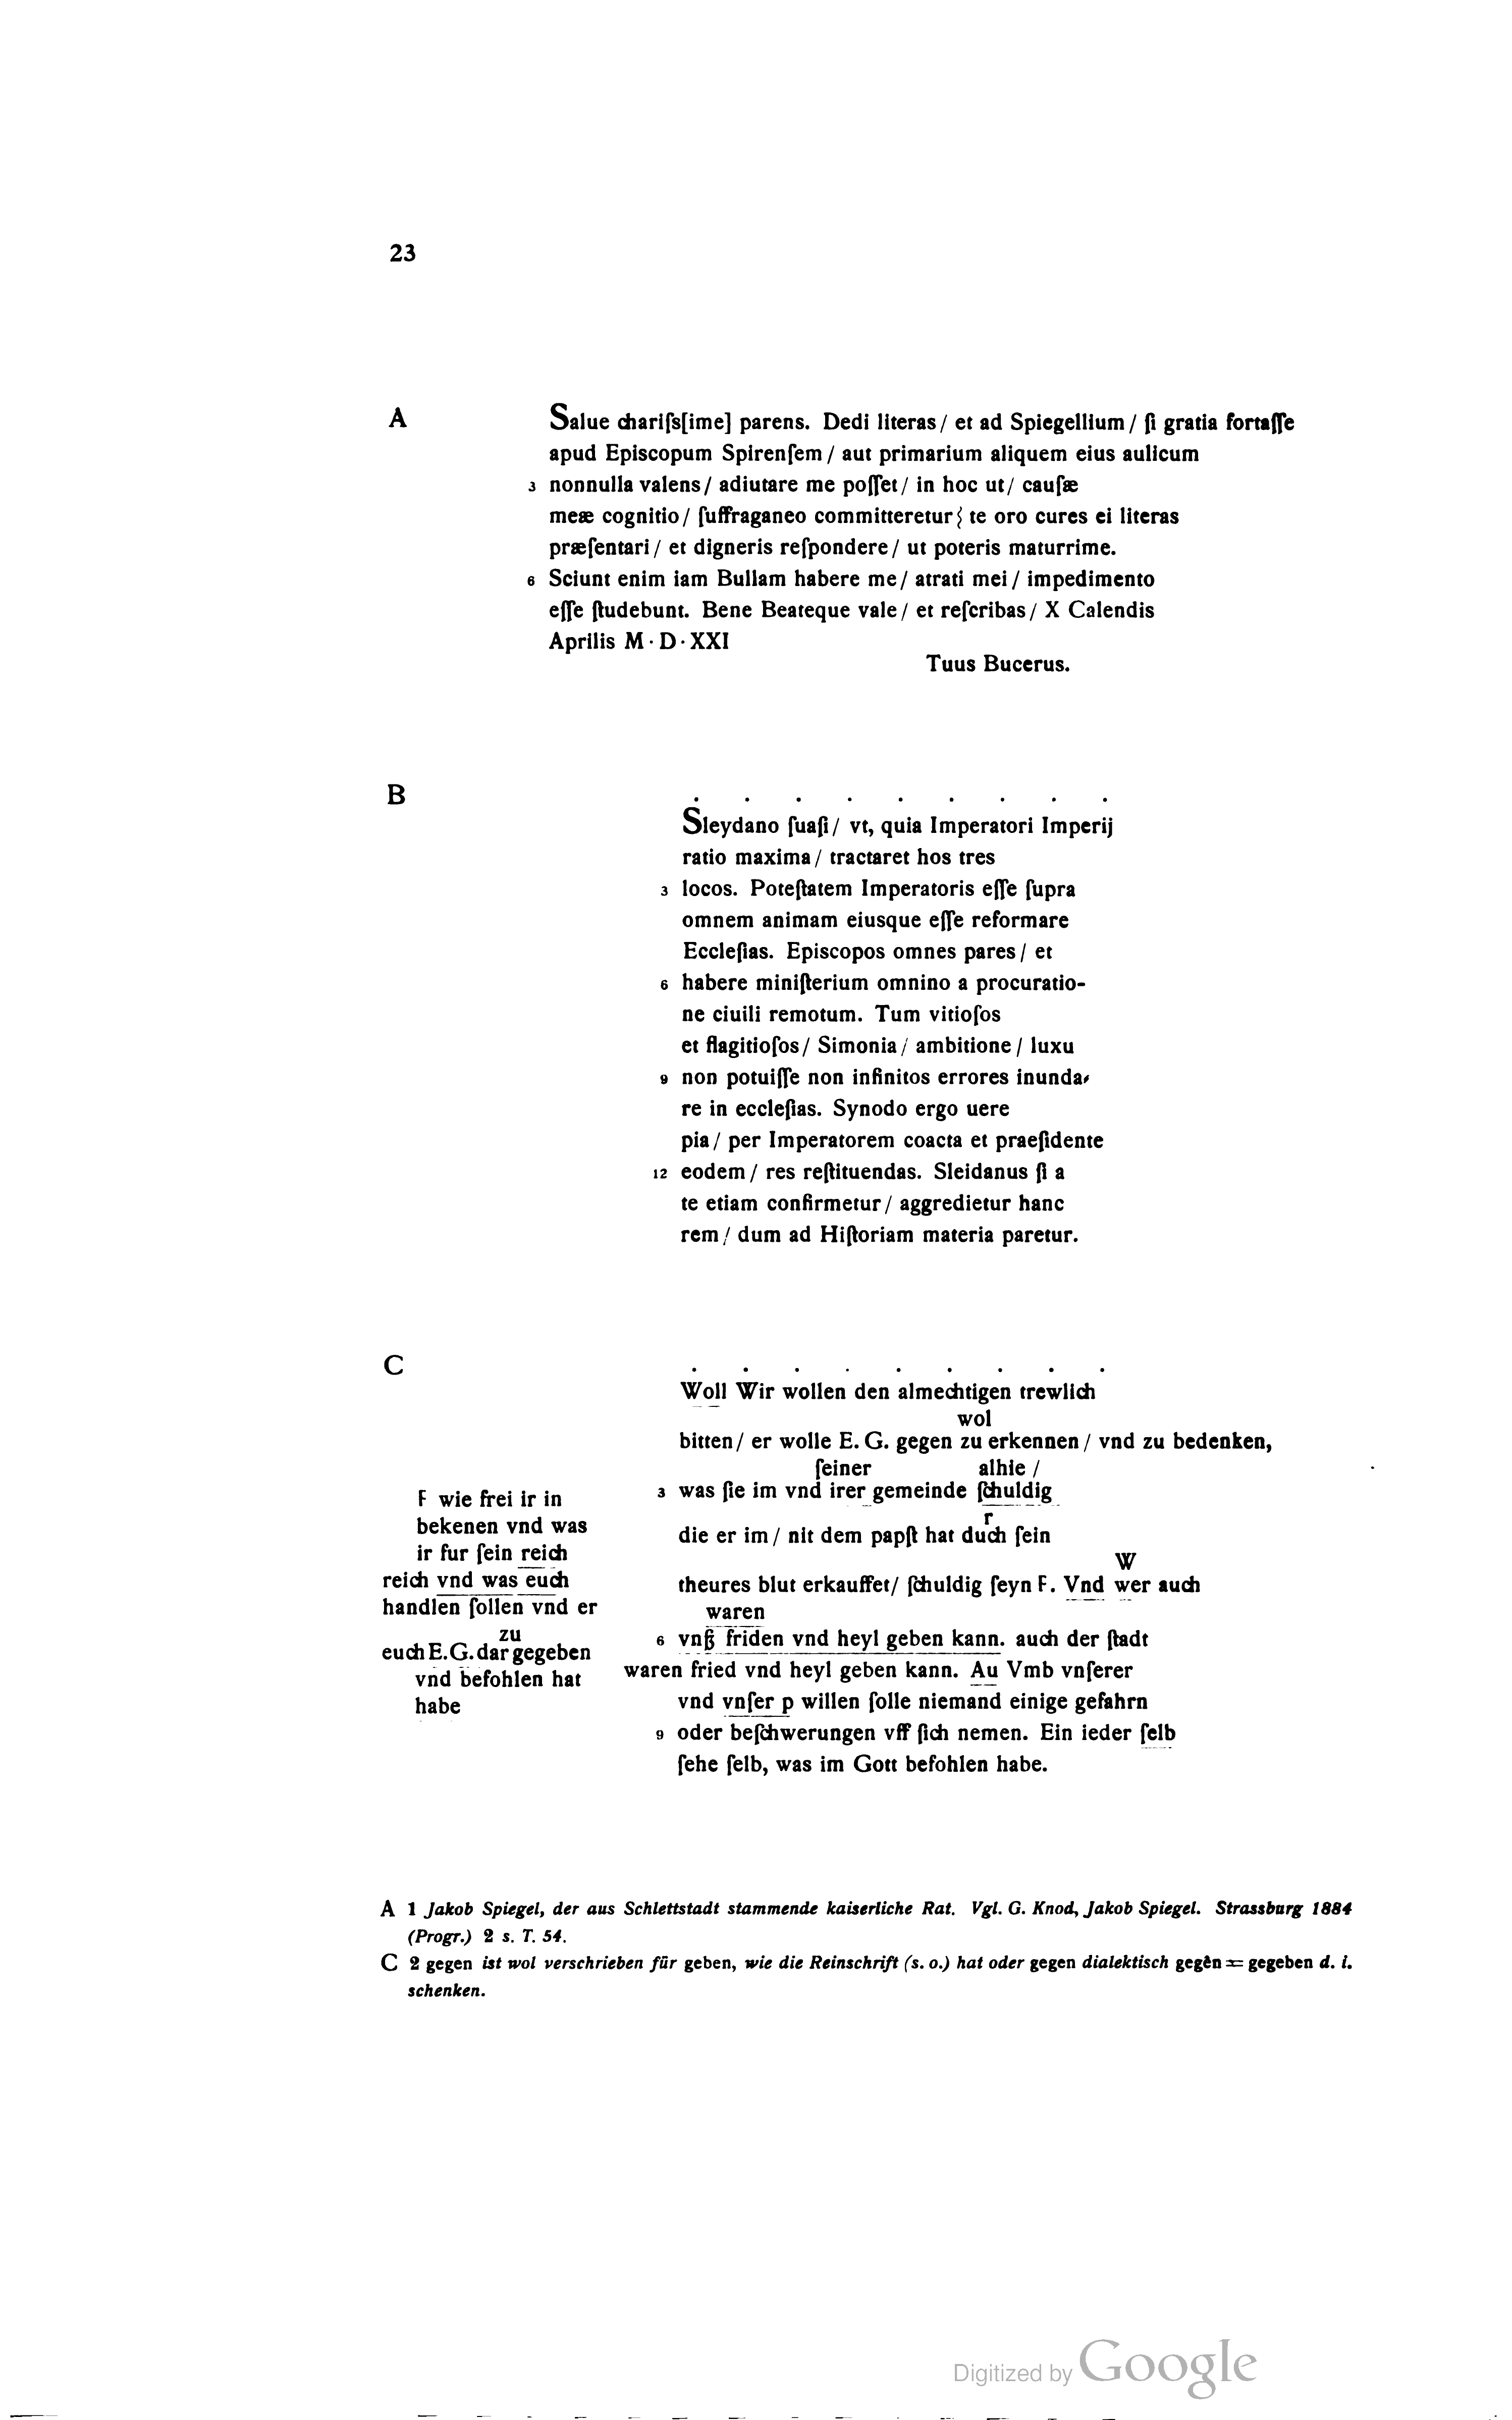 23
A
Salue chariſs[ime] parens. Dedi literas / et ad Spiegellium / ſi gratia fortaſſe
apud Episcopum Spirenſem / aut primarium aliquem eius aulicum
3 nonnulla valens / adiutare me poſſet / in hoc ut / cauſæ
meæ cognitio / ſuffraganeo committeretur ⸾ te oro cures ei literas
præſentari / et digneris reſpondere / ut poteris maturrime.
6 Sciunt enim iam Bullam habere me / atrati mei / impedimento
eſſe ſtudebunt. Bene Beateque vale / et reſcribas / X Calendis
Aprilis M · D · XXI
Tuus Bucerus.
B
. . . . . . . . .
Sleydano ſuaſi / vt, quia Imperatori Imperij
ratio maxima / tractaret hos tres
3 locos. Poteſtatem Imperatoris eſſe ſupra
omnem animam eiusque eſſe reformare
Eccleſias. Episcopos omnes pares / et
6 habere miniſterium omnino a procuratio-
ne ciuili remotum. Tum vitioſos
et flagitioſos / Simonia / ambitione / luxu
9 non potuiſſe non infinitos errores inunda⸗
re in eccleſias. Synodo ergo uere
pia / per Imperatorem coacta et praeſidente
12 eodem / res reſtituendas. Sleidanus ſi a
te etiam confirmetur / aggredietur hanc
rem / dum ad Hiſtoriam materia paretur.
C
. . . . . . . . .
Woll Wir wollen den almechtigen trewlich
wol
bitten / er wolle E. G. gegen zu erkennen / vnd zu bedenken,
ſeiner alhie /
3 was ſie im vnd irer gemeinde ſchuldig
r
die er im / nit dem papſt hat duch ſein
W
theures blut erkauffet / ſchuldig ſeyn F. Vnd wer auch
waren
6 vnß friden vnd heyl geben kann. auch der ſtadt
waren fried vnd heyl geben kann. Au Vmb vnſerer
vnd vnſer p willen ſolle niemand einige gefahrn
9 oder beſchwerungen vff ſich nemen. Ein ieder ſelb
ſehe ſelb, was im Gott befohlen habe.
F wie frei ir in
bekenen vnd was
ir fur ſein reich
reich vnd was euch
handlen ſollen vnd er
zu
euch E. G. dar gegeben
vnd befohlen hat
habe
A 1 Jakob Spiegel, der aus Schlettstadt stammende kaiserliche Rat. Vgl. G. Knod, Jakob Spiegel. Strassburg 1884
(Progr.) 2 s. T. 54.
C 2 gegen ist wol verschrieben für geben, wie die Reinschrift (s. o.) hat oder gegen dialektisch gegēn = gegeben d. i.
schenken.
Digitized by Google